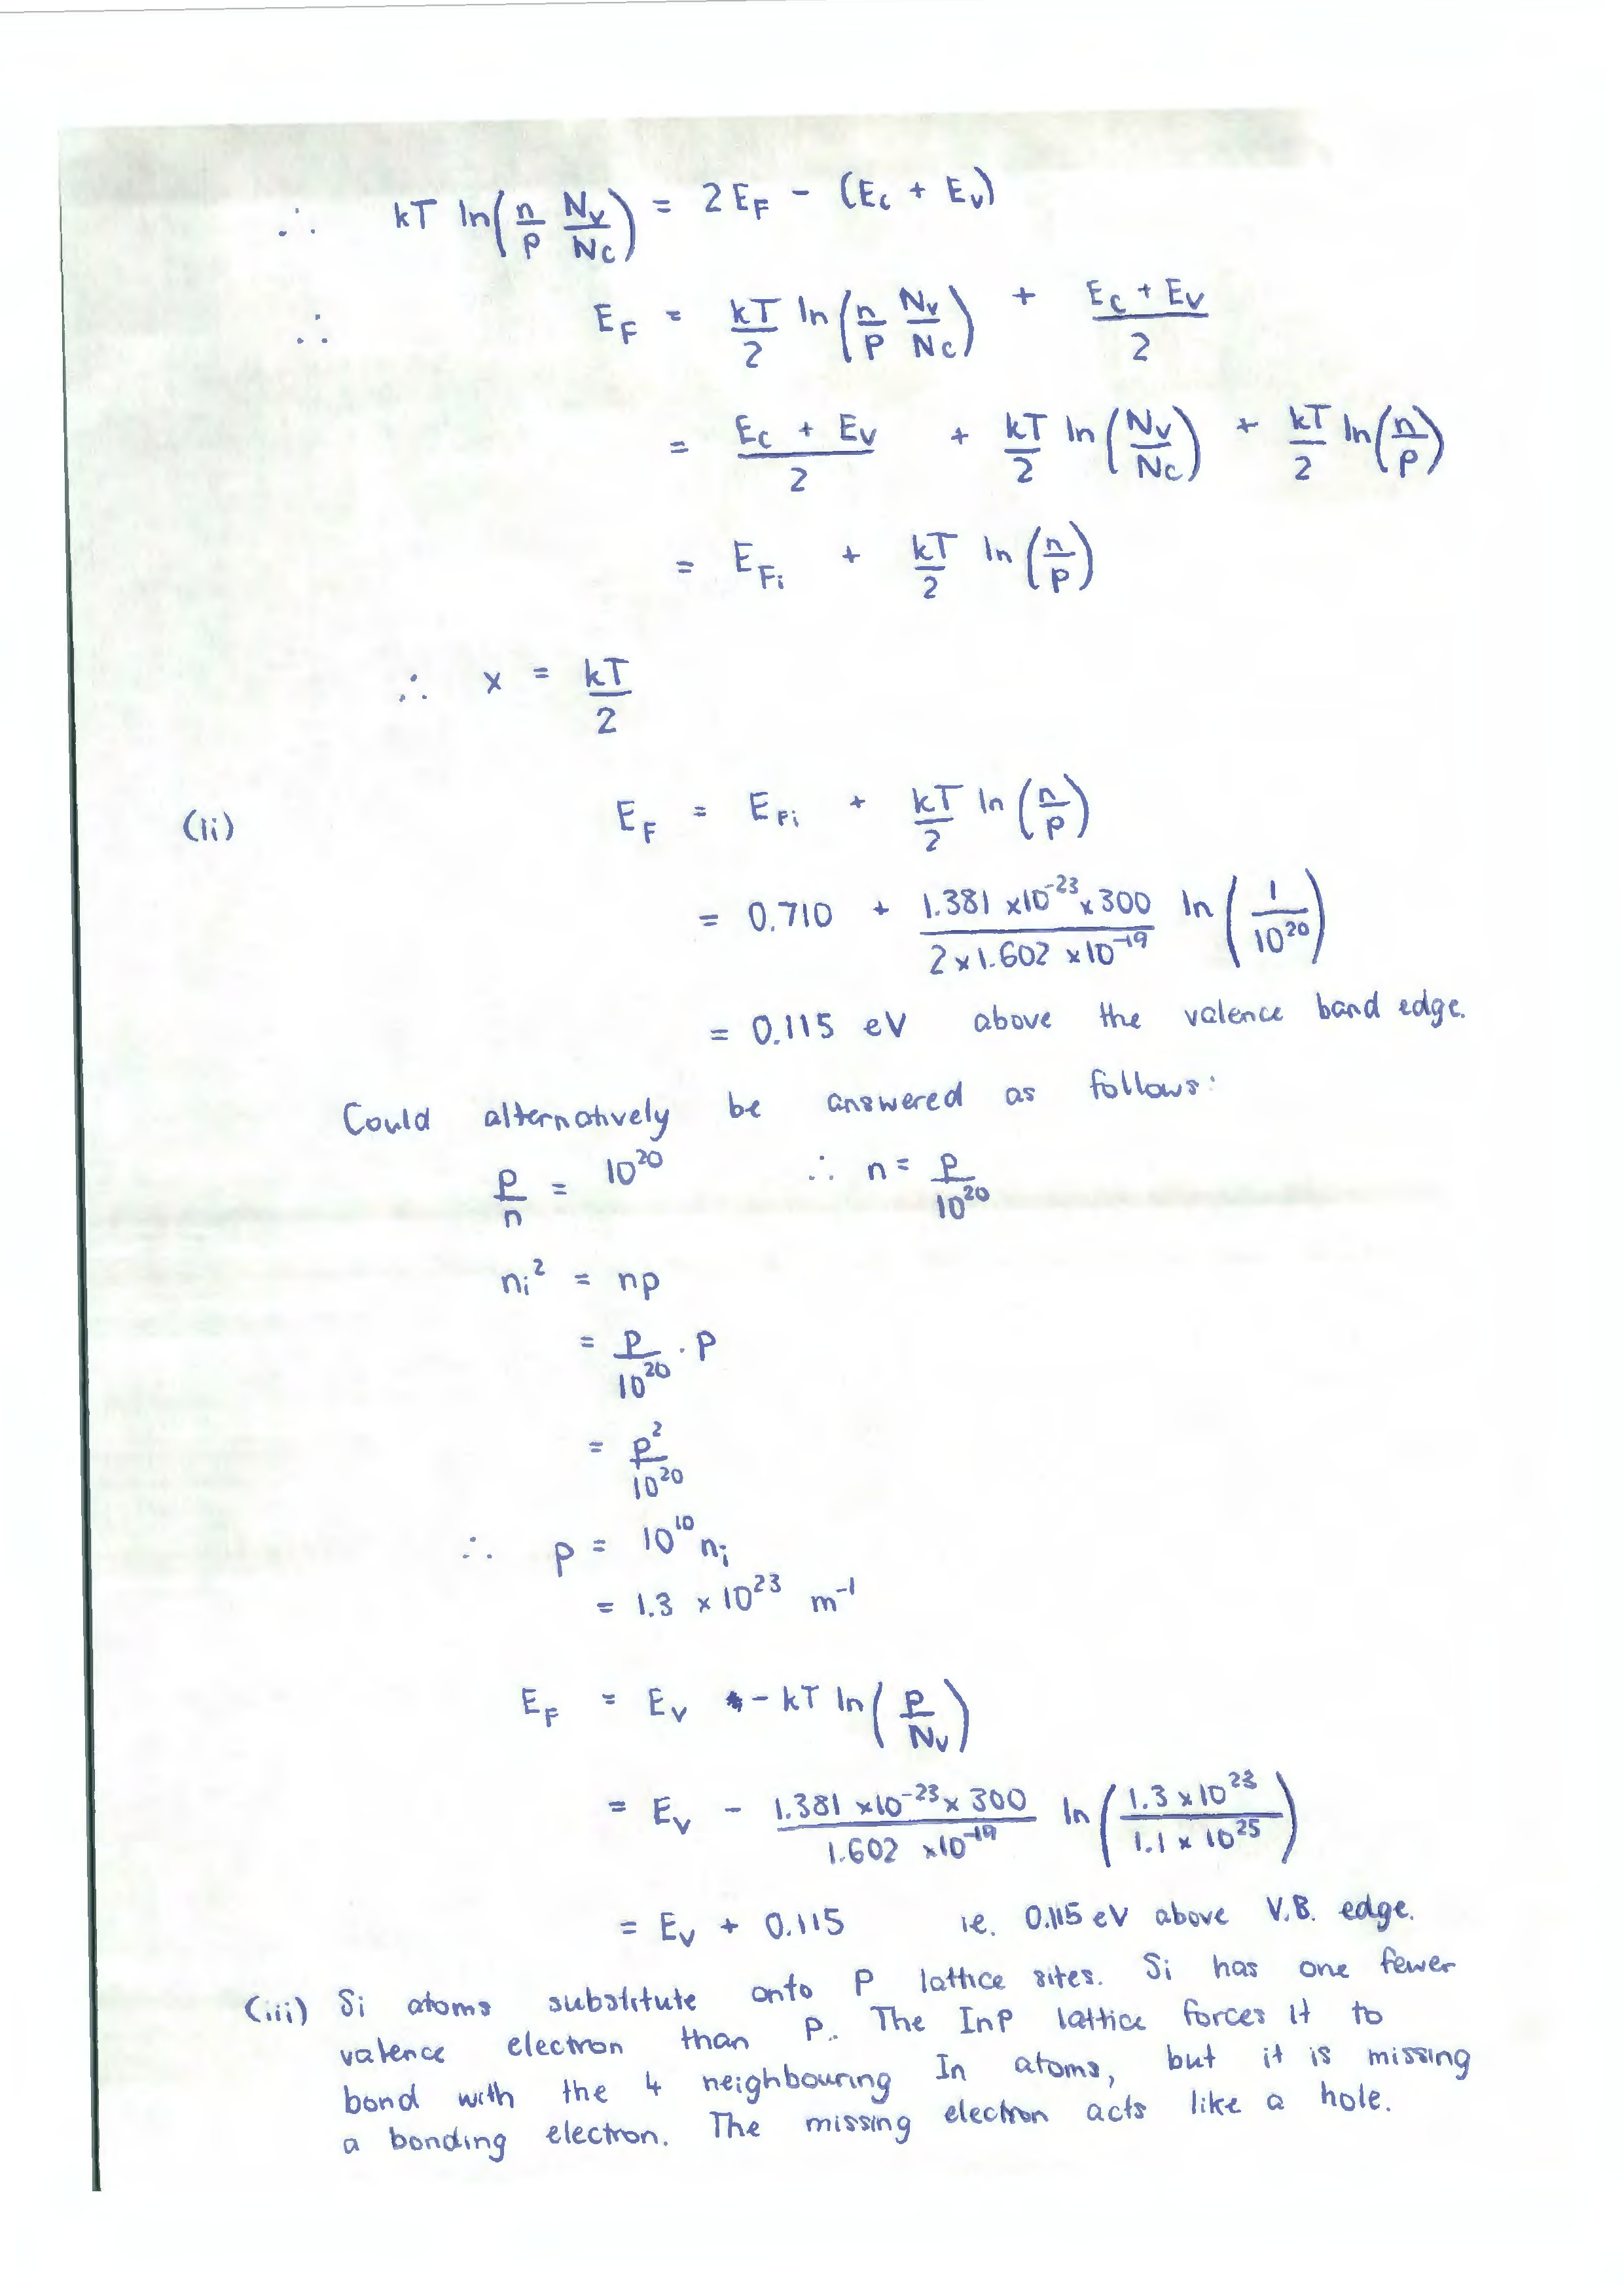 ∴ kT ln(n/p N_v/N_c) = 2E_F - (E_c + E_v)
∴ E_F = kT/2 ln(n/p N_v/N_c) + (E_c + E_v)/2
= (E_c + E_v)/2 + kT/2 ln(N_v/N_c) + kT/2 ln(n/p)
= E_Fi + kT/2 ln(n/p)
∴ x = kT/2
(ii) E_F = E_Fi + kT/2 ln(n/p)
= 0.710 + (1.381 x10^-23 x 300)/(2 x 1.602 x10^-19) ln(1/10^20)
= 0.115 eV above the valence band edge.
Could alternatively be answered as follows:
p/n = 10^20 ∴ n = p/10^20
n_i^2 = np
= p/10^20 . p
= p^2/10^20
∴ p = 10^10 n_i
= 1.3 x 10^23 m^-1
E_F = E_v - kT ln(p/N_v)
= E_v - (1.381 x10^-23 x 300)/(1.602 x10^-19) ln(1.3 x 10^23/1.1 x 10^25)
= E_v + 0.115 ie. 0.115 eV above V.B. edge.
(iii) Si atoms substitute onto P lattice sites. Si has one fewer
valence electron than P. The InP lattice forces it to
bond with the 4 neighbouring In atoms, but it is missing
a bonding electron. The missing electron acts like a hole.